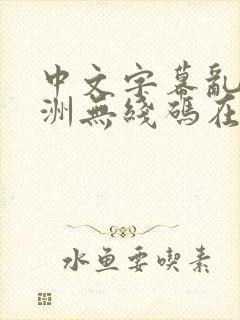 中文字幕亂
洲無綫碼在
水鱼要喫素